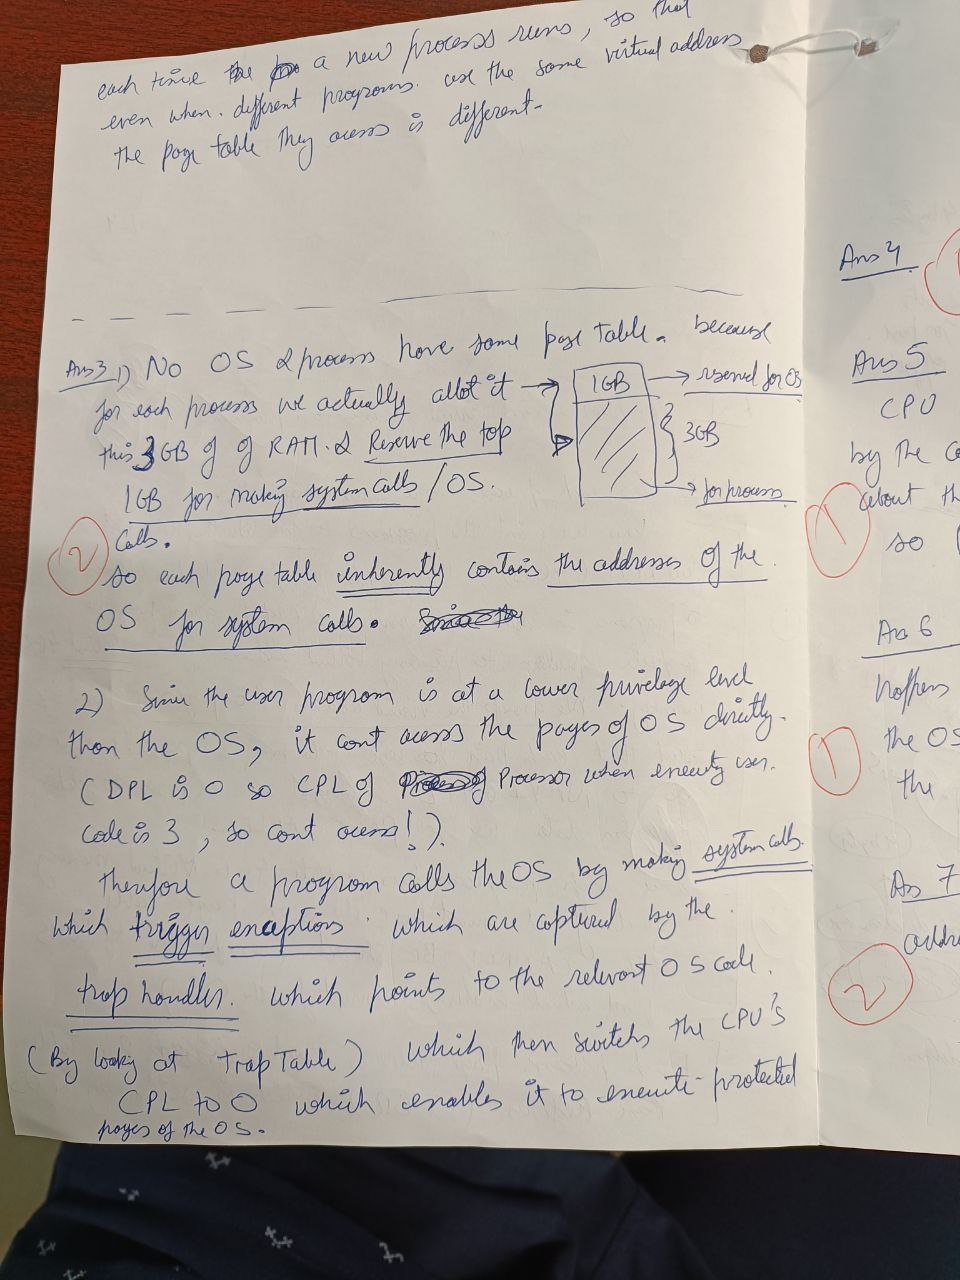 each time the a new process runs, so that
even when. different programs. use the same virtual address
the page table they acess is different.
Ans3 1) No OS & process have same page table. because
for each process we actually allot it
this 3GB of of RAM. & Reserve the top
1GB for making system calls / OS.
calls.
1GB → reserved for OS
3GB
→ for process
2
so each page table inherently contains the addresses of the
OS for system calls.
2) Since the user program is at a lower privelage level
than the OS, it cant acess the pages of OS directly.
(DPL is 0 so CPL of Processor when executing user.
code is 3, so cant acess!).
therefore a program calls the OS by making system calls.
which trigger exceptions which are captured by the.
trap handler. which points to the relevant OS code.
(By looking at Trap Table) which then switches the CPU's
CPL to 0 which enables it to execute protected
pages of the OS.
Ans 4
Ans 5
CPU
by the
about th
so
1
Ans 6
happens
the OS
the
1
Ans 7
addre
2